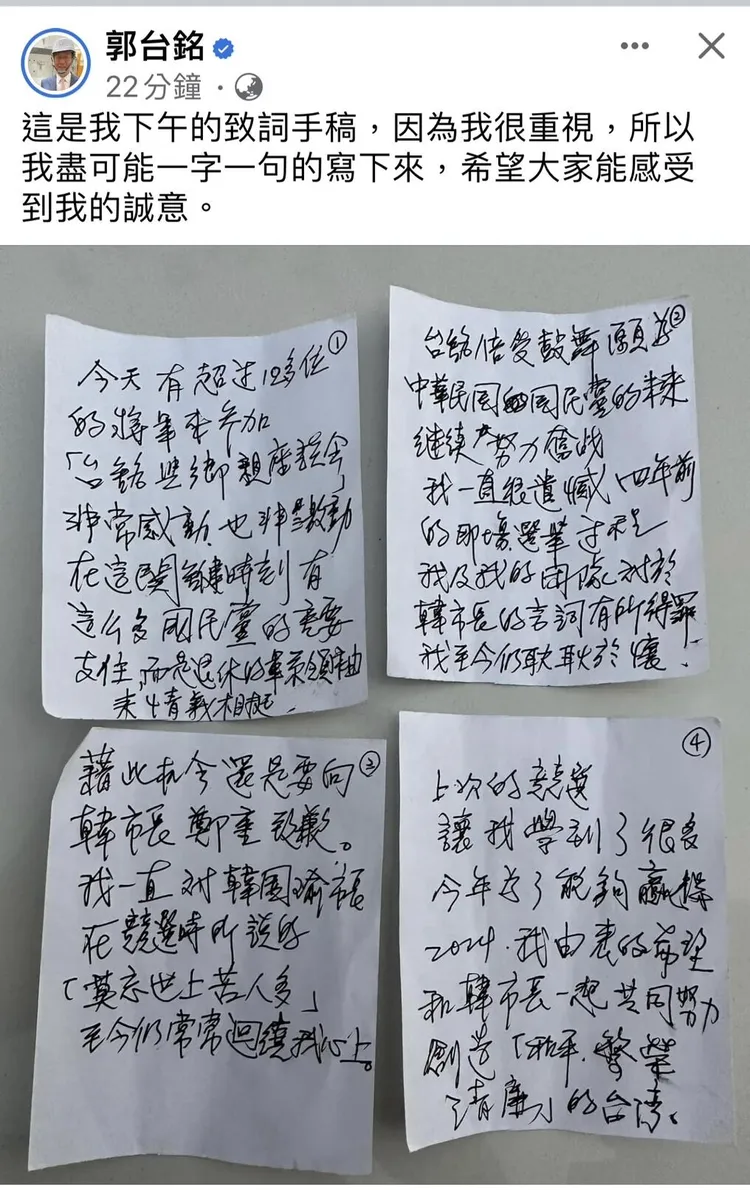 郭台銘
22分鐘
這是我下午的致詞手稿，因為我很重視，所以
我盡可能一字一句的寫下來，希望大家能感受
到我的誠意。
①
今天有超过12多位
的將軍來參加
「台銘與鄉親座談会」
非常感動也非常激動
在這關鍵時刻有
這么多國民黨的重要
支柱,而是退休的軍系領袖
來情義相挺.
②
台銘倍受鼓舞願為
中華民国 国民黨的未來
继续 努力奮战
我一直很遺憾,四年前
的那場選舉过程
我及我的团隊对於
韓市長的言詞有所得罪
我至今仍耿耿於懷.
③
藉此机会還是要向
韓市長鄭重致歉。
我一直对韓国瑜市長
在競選時所說的
「莫忘世上苦人多」
至今仍常常迴繞我心上。
④
上次的競選
讓我學到了很多
今年为了能夠贏得
2024.我由衷的希望
和韓市長一起共同努力
創造「和平.繁榮
清廉」的台湾。